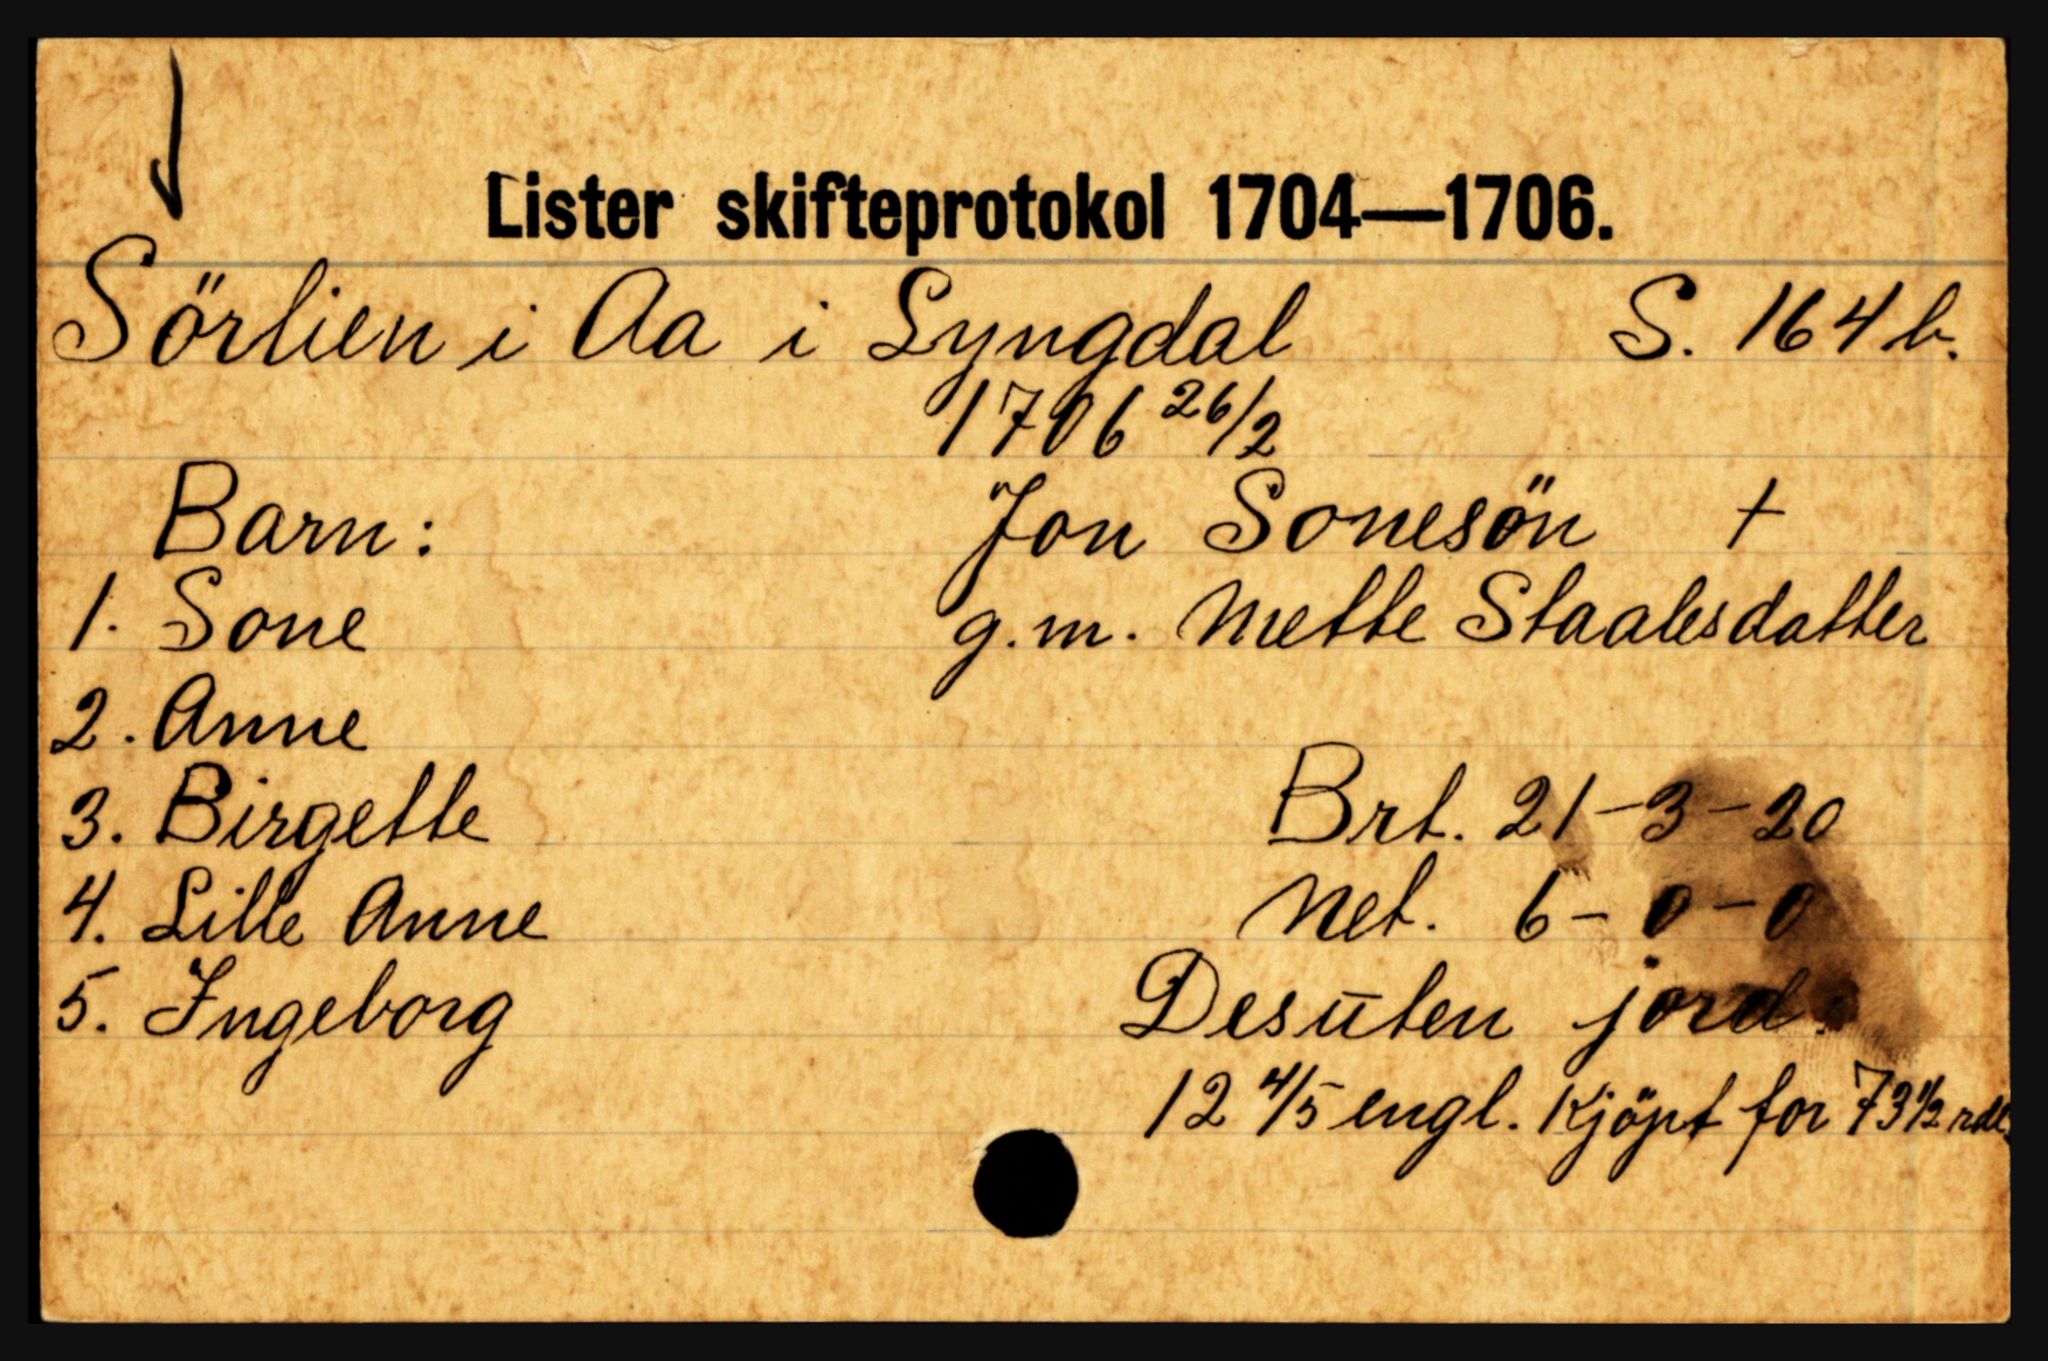 Lister skifteprotokol 1704—1706.
Sörlien i Aa i Lyngdal S. 164 b.
1706 26/2
Barn: Jon Sonesön +
1. Sone g.m. Mette Staalesdatter
2. Anne
3. Birgette Brt. 21-3-20
4. Lille Anne Net. 6-0-0
5. Ingeborg Desuten jord:
12 4/5 engl. Kjöpt for 73 1/2 rdl.